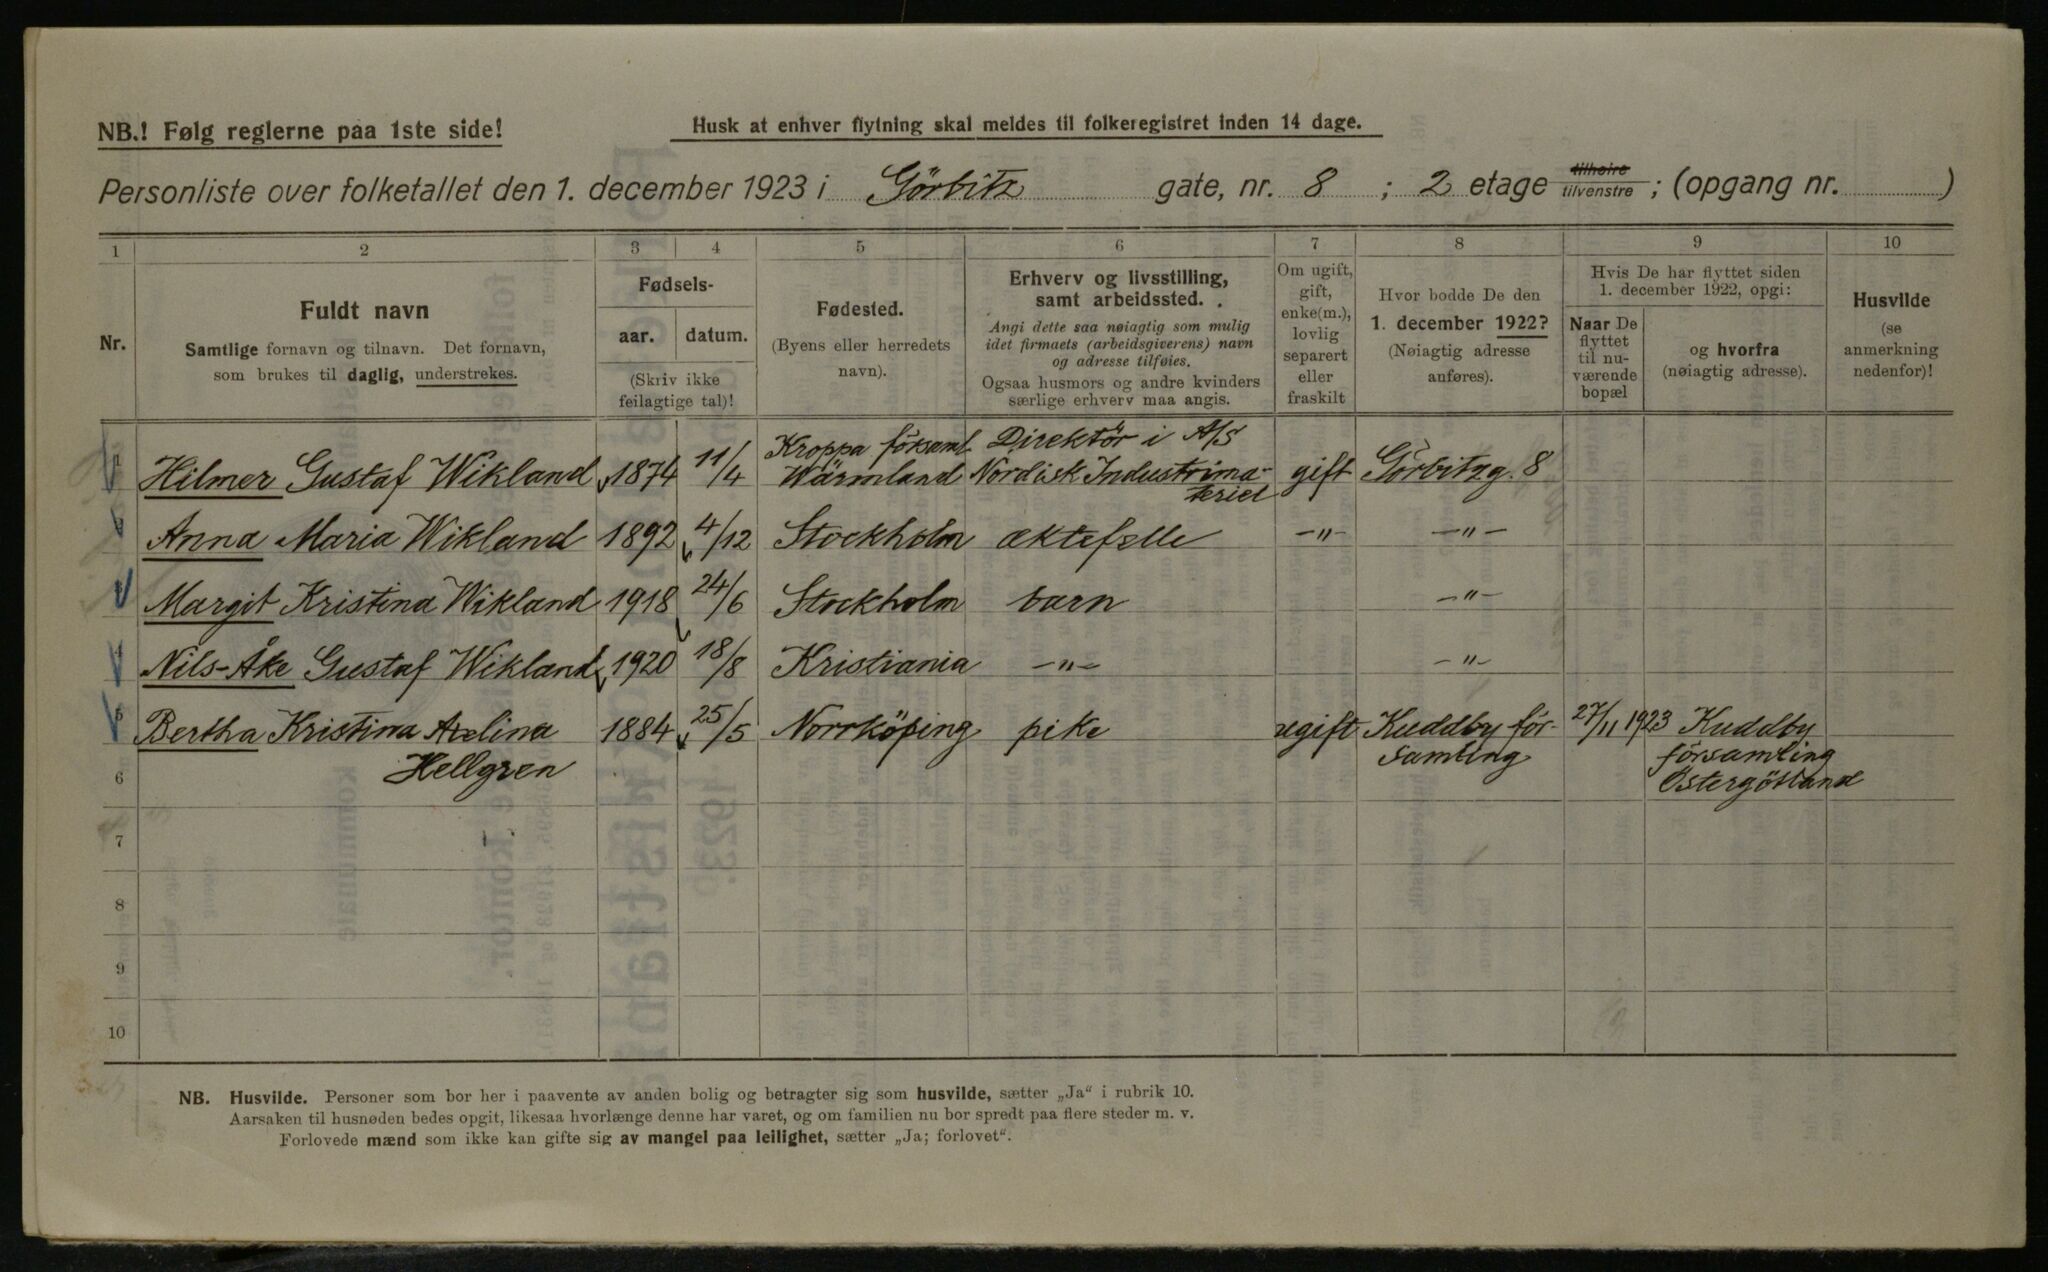 NB.! Følg reglerne paa 1ste side!
Husk at enhver flytning skal meldes til folkeregistret inden 14 dage.
Personliste over folketallet den 1. december 1923 i Görbitz gate, nr. 8 ; 2 etage tilhøire tilvenstre ; (opgang nr. )
1 2 3 4 5 6 7 8 9 10
Nr.
Fuldt navn
Samtlige fornavn og tilnavn. Det fornavn,
som brukes til daglig, understrekes.
Fødsels-
aar. datum.
(Skriv ikke
feilagtige tal)!
Fødested.
(Byens eller herredets
navn).
Erhverv og livsstilling,
samt arbeidssted.
Angi dette saa nøiagtig som mulig
idet firmaets (arbeidsgiverens) navn
og adresse tilføies.
Ogsaa husmors og andre kvinders
særlige erhverv maa angis.
Om ugift,
gift,
enke(m.),
lovlig
separert
eller
fraskilt
Hvor bodde De den
1. december 1922?
(Nøiagtig adresse
anføres).
Hvis De har flyttet siden
1. december 1922, opgi:
Naar De
flyttet
til nu-
værende
bopæl
og hvorfra
(nøiagtig adresse).
Husvilde
(se
anmerkning
nedenfor)!
1 Hilmer Gustaf Wikland 1874 11/4 Kroppa församl Wärmland Direktör i A/S Nordisk Industrimateriel gift Görbitzg. 8
2 Anna Maria Wikland 1892 4/12 Stockholm æktefelle -"- -"-
3 Margit Kristina Wikland 1918 24/6 Stockholm barn -"-
4 Nils-Åke Gustaf Wikland 1920 18/8 Kristiania -"- -"-
5 Bertha Kristina Axelina 1884 25/5 Norrköping pike ugift Kuddby för- 27/11 1923 Kuddby
6 Hellgren samling församling
Östergötland
7
8
9
10
NB. Husvilde. Personer som bor her i paavente av anden bolig og betragter sig som husvilde, sætter „Ja“ i rubrik 10.
Aarsaken til husnøden bedes opgit, likesaa hvorlænge denne har varet, og om familien nu bor spredt paa flere steder m. v.
Forlovede mænd som ikke kan gifte sig av mangel paa leilighet, sætter „Ja; forlovet“.